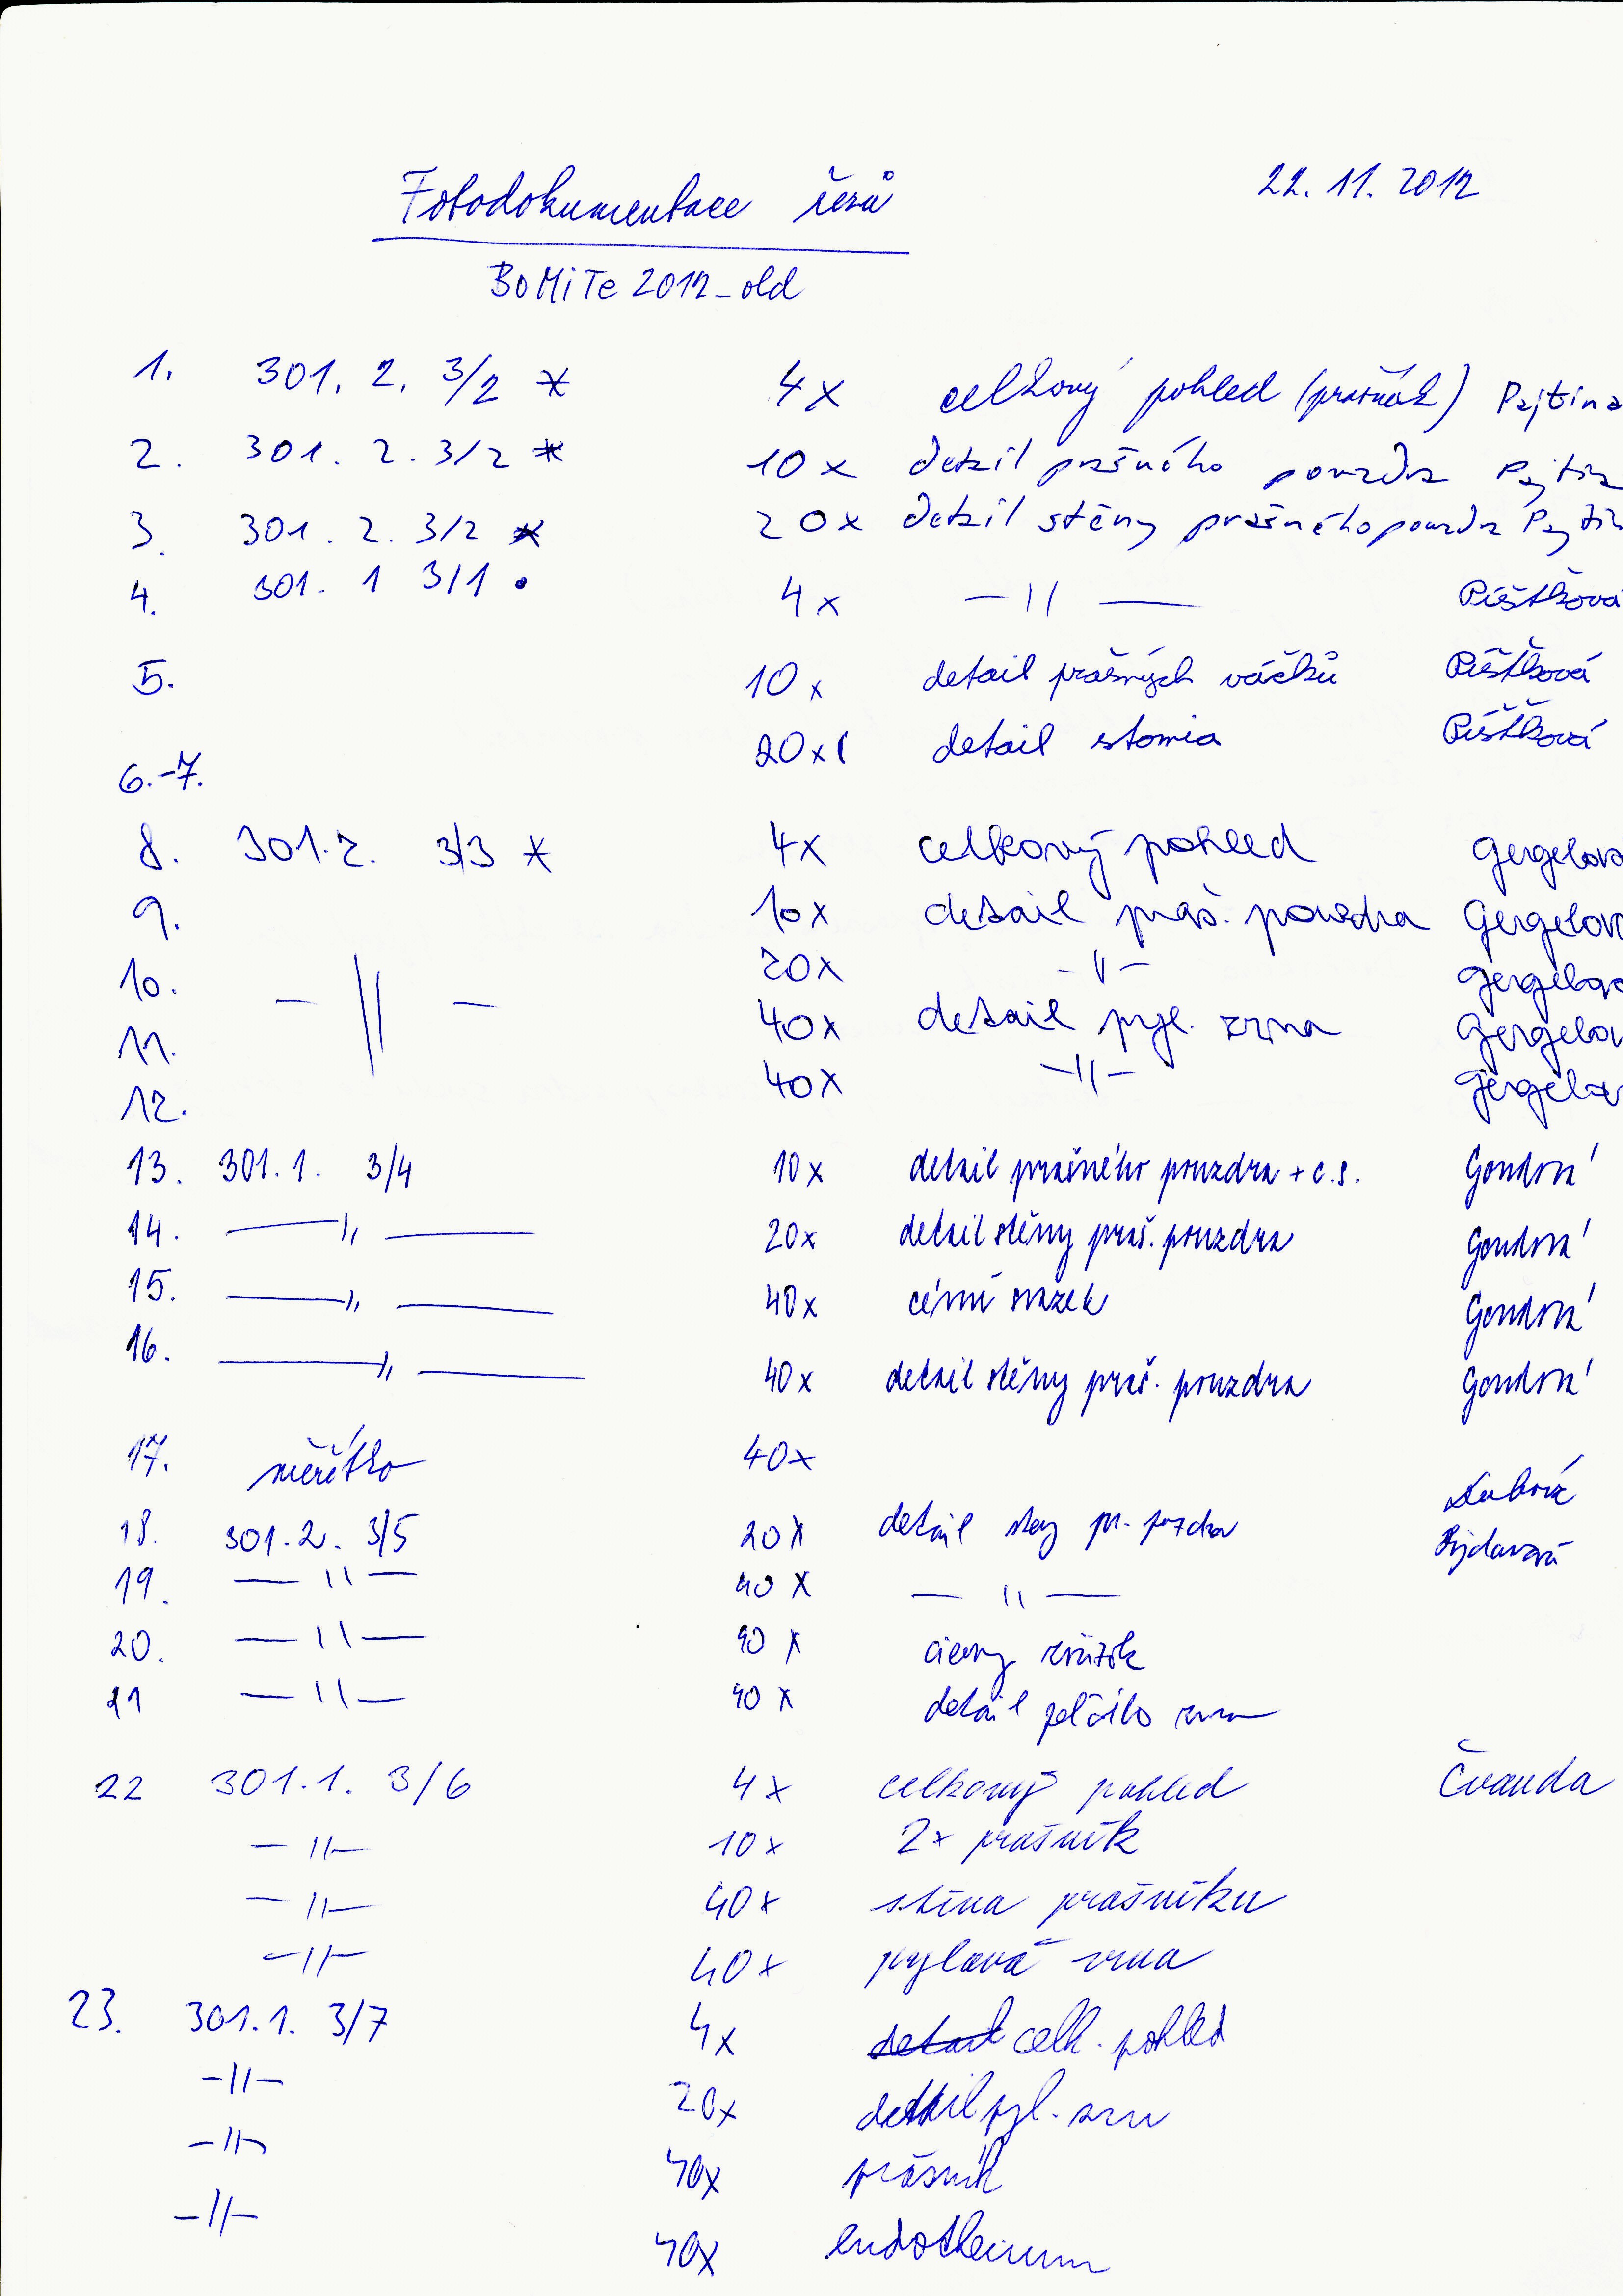 22. 11. 2012
Fotodokumentace řezů
BoMiTe 2012_old
1. 301. 2. 3/2 * 4x celkový pohled (prašník) Pajtina
2. 301. 2. 3/2 * 10x detail prašného pouzdra Pajtin
3. 301. 2. 3/2 * 20x detail stěny prašného pouzdra Pajtin
4. 301. 1 3/1 • 4x —〃— Píštková
5. 10x detail prašných váčků Píštková
6.-7. 20x detail stomia Píštková
8. 301.2. 3/3 * 4x celkový pohled Gergelová
9. 10x detail praš. pouzdra Gergelov
10. —〃— 20x —〃— Gergelov
11. 40x detail pyl. zrna Gergelov
12. 40x —〃— Gergelov
13. 301.1. 3/4 10x detail prašného pouzdra + c.s. Gondová
14. —〃— 20x detail stěny praš. pouzdra Gondová
15. —〃— 40x cévní svazek Gondová
16. —〃— 40x detail stěny praš. pouzdra Gondová
17. měřítko 40x
18. 301.2. 3/5 20x detail pr.
19. —〃— 40x —〃—
20. —〃— 40x cievny zväzok
21 —〃— 40x detail
22 301.1. 3/6 4x celkový pohled Čvanda
—〃— 10x 2x prašník
—〃— 40x stěna prašníku
—〃— 40x pylová zrna
23. 301.1. 3/7 4x detail celk. pohled
—〃— 20x detail pyl. zrn
—〃— 40x prašník
—〃— 40x endotheium